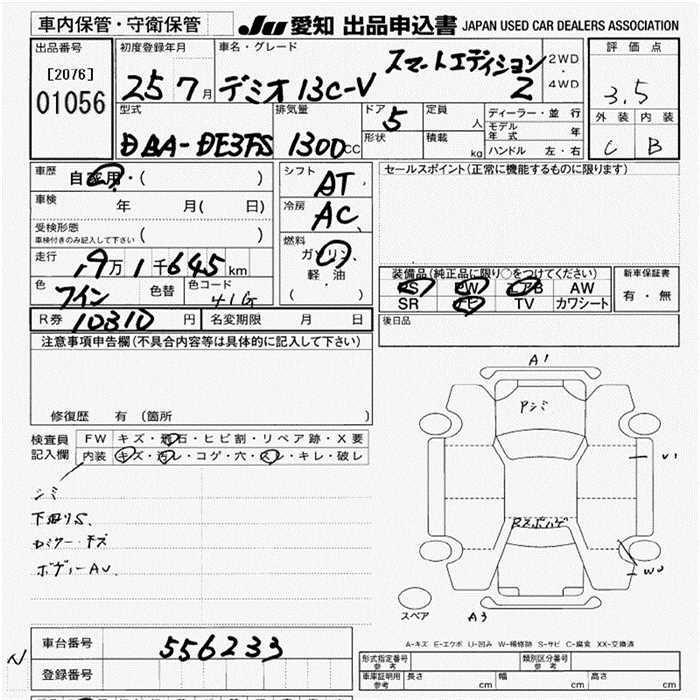 車内保管・守衛保管
JU 愛知 出品申込書 JAPAN USED CAR DEALERS ASSOCIATION
出品番号
[2076]
01056
初度登録年月
25 7月
車名・グレード
デミオ 13C-V
スマートエディション
2
2WD
・
4WD
評価点
3.5
外装 内装
C B
型式
DBA-DE3FS
排気量
1300cc
ドア 5
形状
定員 人
積載 kg
ディーラー・並行
モデル年式 年
ハンドル 左・右
車歴
自家用・( )
車検
年 月( 日)
受検形態
車検付きのみ記入して下さい ( )
走行
9万1千645km
色
ワイン
色替
色コード
41G
R券 10310円
名変期限 月 日
シフト
AT
冷房
AC
燃料
ガソリン
軽・油
( )
セールスポイント(正常に機能するものに限ります)
装備品(純正品に限り○をつけてください)
PS PW エアB AW
SR TV カワシート
新車保証書
有・無
後日品
注意事項申告欄(不具合内容等は具体的に記入して下さい)
修復歴 有(箇所
検査員
記入欄
FW キズ・飛石・ヒビ割・リペア跡・X要
内装 キズ・汚レ・コゲ・穴・スレ・キレ・破レ
シミ
下回りS、
ボディーAU、
A1
アシミ
U1
Rスポハゲ
W2
スペア
A3
A-キズ E-エクボ U-凹み W-補修跡 S-サビ C-腐食 XX-交換済
車台番号
556233
登録番号
形式指定番号
参考
類別区分番号
参考
車庫証明用
参考
長さ cm 幅 cm 高さ cm